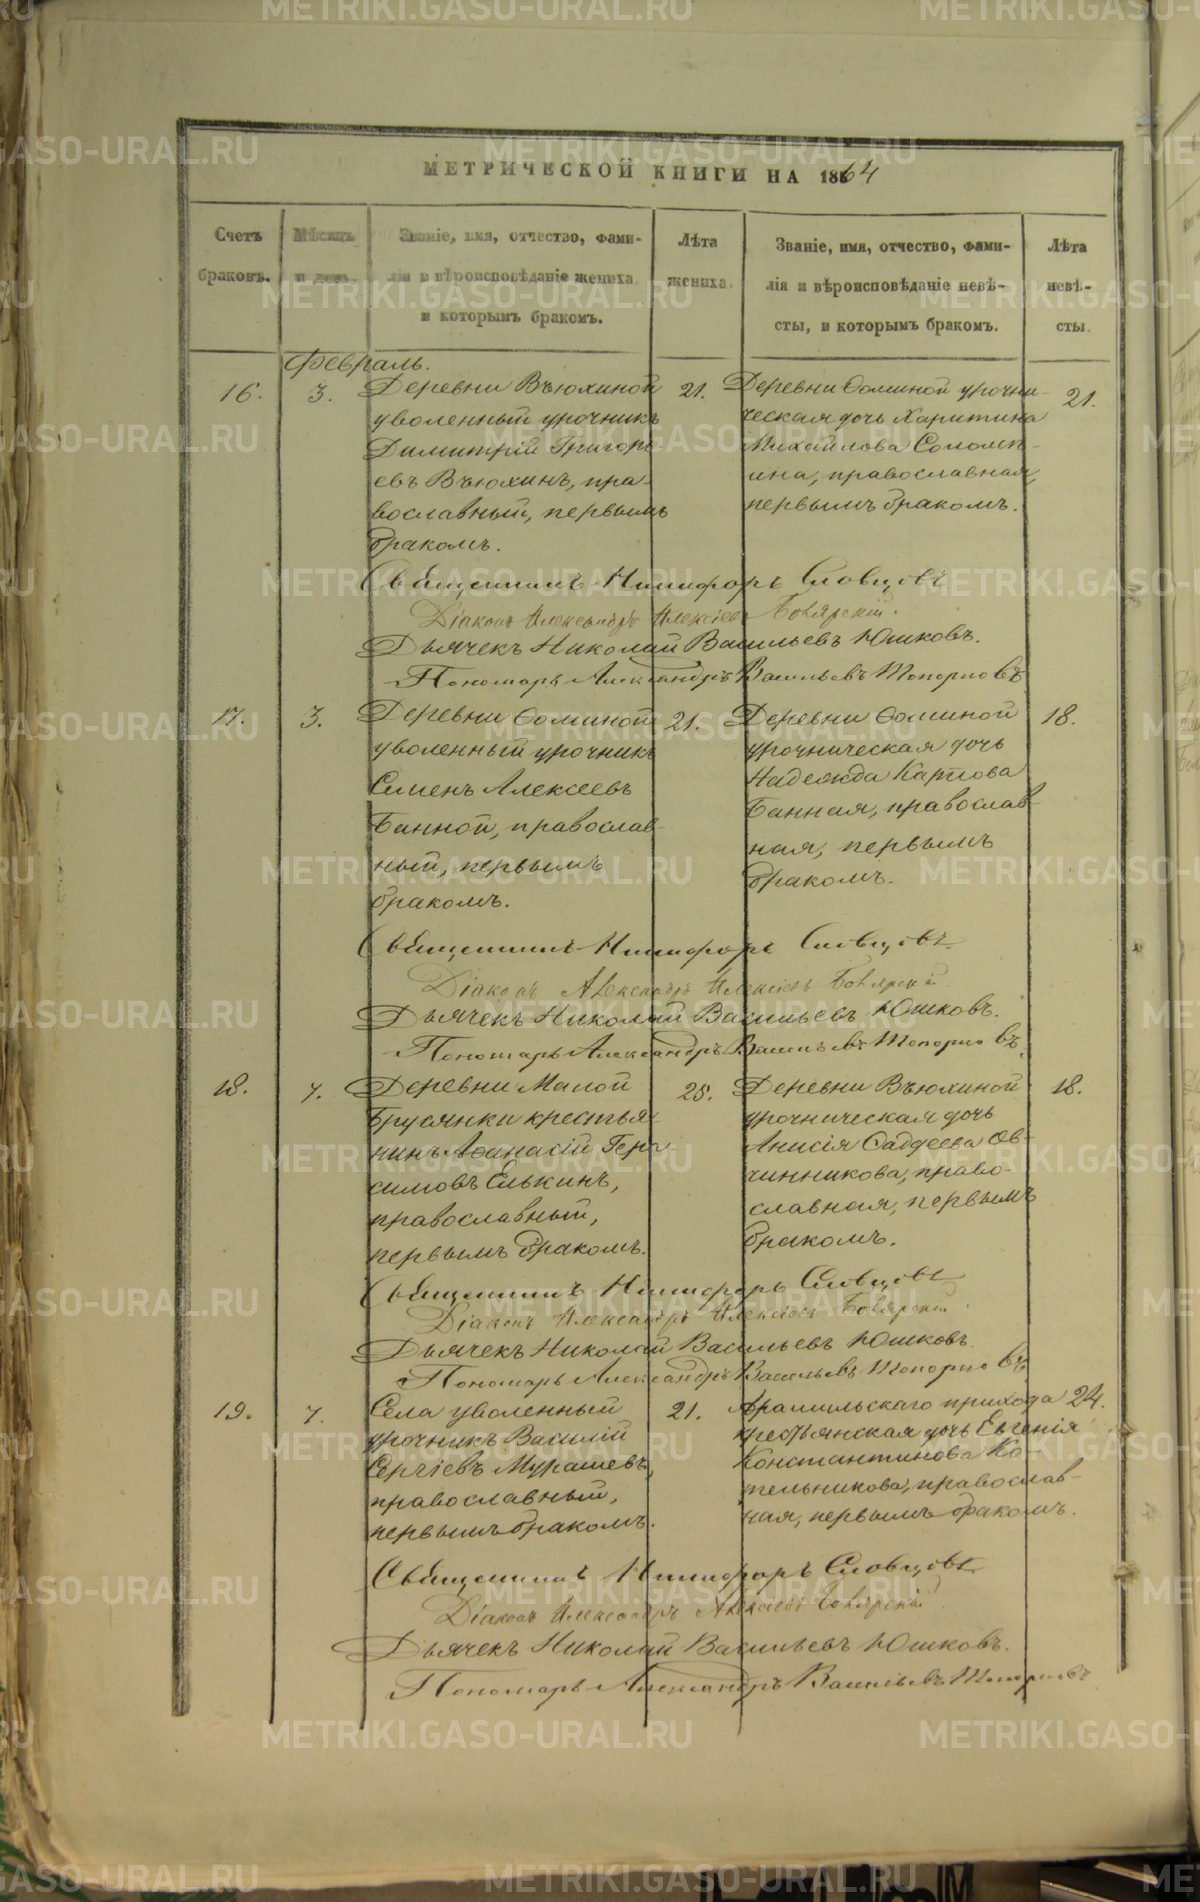 МЕТРИЧЕСКОЙ КНИГИ НА 1864
Счетъ браковъ.
Мѣсяцъ и день.
Званіе, имя, отчество, фами-
лія и вѣроисповѣданіе жениха
и которымъ бракомъ.
Лѣта жениха.
Званіе, имя, отчество, фами-
лія и вѣроисповѣданіе невѣ-
сты, и которымъ бракомъ.
Лѣта невѣ-
сты.
Февраль.
16.
3.
Деревни Вьюхиной
уволенный урочникъ
Димитрій Григорь-
евъ Вьюхинъ, пра-
вославный, первымъ
бракомъ.
21.
Деревни Ѳоминой урочни-
ческая дочь Харитина
Михайлова Соломе-
ина, православная,
первымъ бракомъ.
21.
Священникъ Никифоръ Словцовъ
Діаконъ Александръ Алексіевъ Боярскій.
Дьячекъ Николай Васильевъ Юшковъ.
Пономарь Александръ Васильевъ Топорковъ
17.
3.
Деревни Ѳоминой
уволенный урочникъ
Семенъ Алексеевъ
Банной, православ-
ный, первымъ
бракомъ.
21.
Деревни Ѳоминой
урочническая дочь
Надежда Карпова
Банная, православ-
ная, первымъ
бракомъ.
18.
Священникъ Никифоръ Словцовъ
Діаконъ Александръ Алексіевъ Боярскій
Дьячекъ Николай Васильевъ Юшковъ.
Пономарь Александръ Васильевъ Топорковъ.
18.
7.
Деревни Малой
Брусянки крестья-
нинъ Аѳанасій Гера-
симовъ Елькинъ,
православный,
первымъ бракомъ.
25.
Деревни Вьюхиной
урочническая дочь
Анисія Ѳаддеева Ов-
чинникова, право-
славная, первымъ
бракомъ.
18.
Священникъ Никифоръ Словцовъ
Діаконъ Александръ Алексіевъ Боярскій.
Дьячекъ Николай Васильевъ Юшковъ.
Пономарь Александръ Васильевъ Топорковъ
19.
7.
Села уволенный
урочникъ Василій
Сергіевъ Мурашевъ,
православный,
первымъ бракомъ.
21.
Арамильскаго прихода
крестьянская дочь Евгенія
Константинова Ко-
тельникова, православ-
ная, первымъ бракомъ.
24.
Священникъ Никифоръ Словцовъ
Діаконъ Александръ Алексіевъ Боярскій.
Дьячекъ Николай Васильевъ Юшковъ.
Пономарь Александръ Васильевъ Топорковъ
METRIKI.GASO-URAL.RU